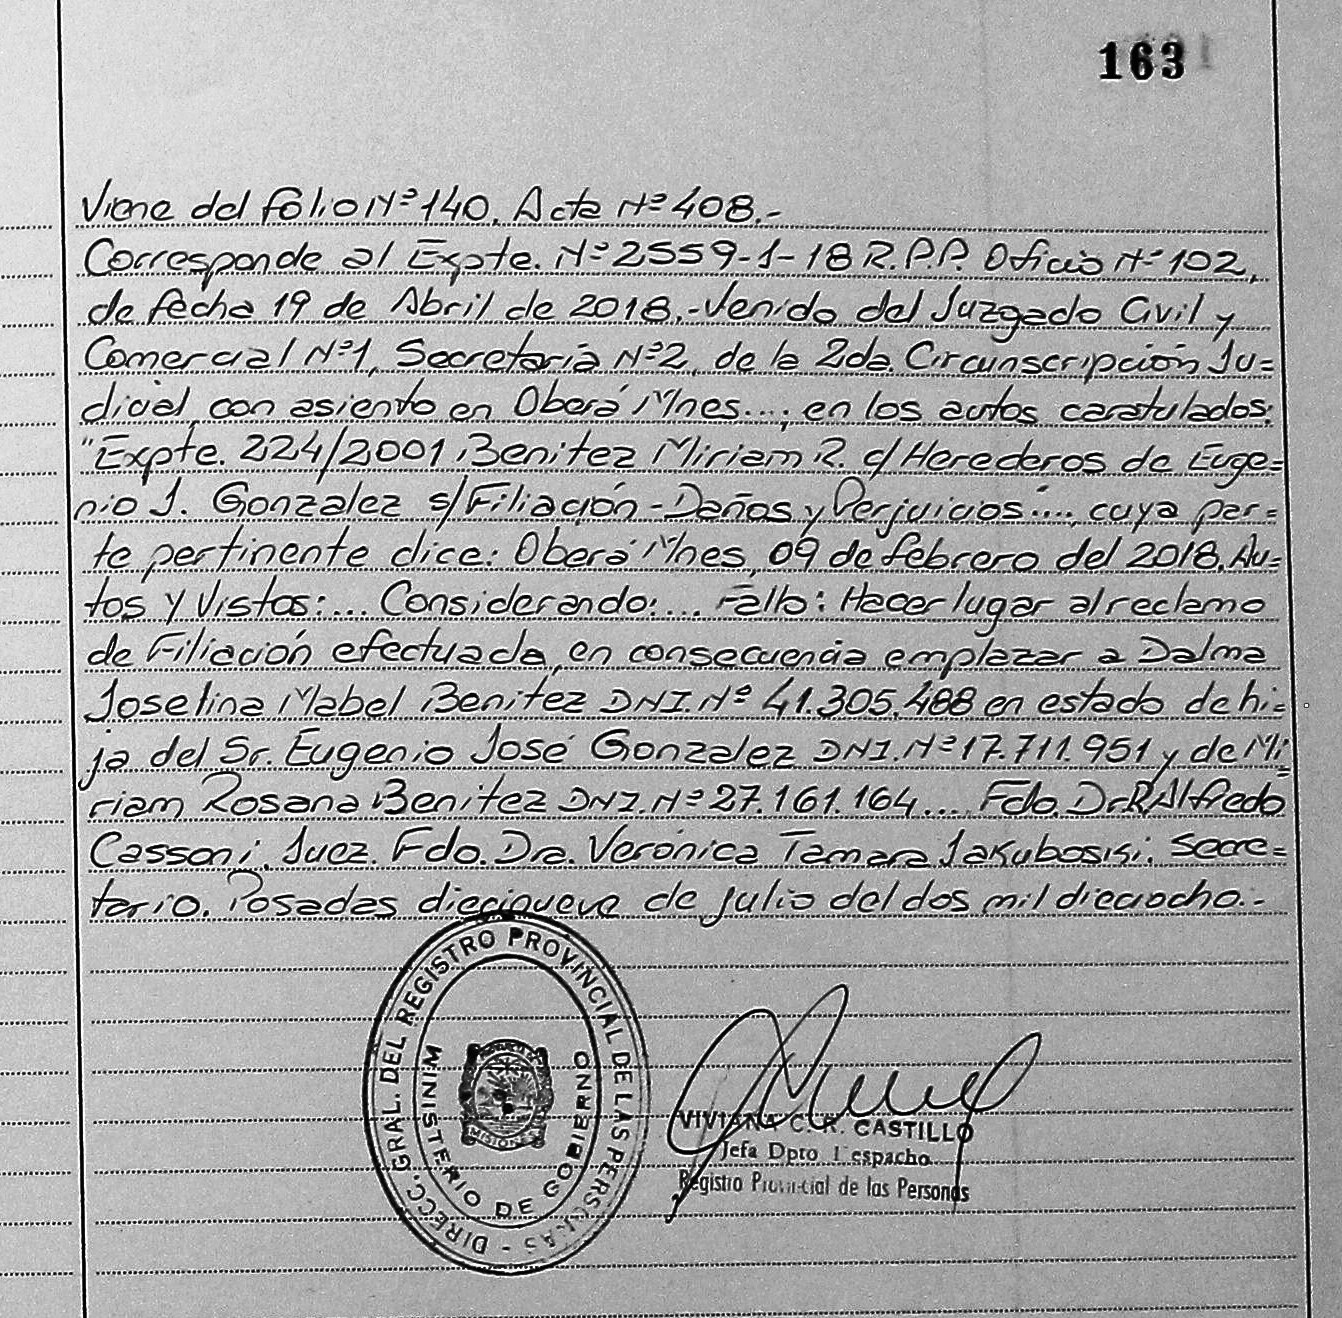 163
Viene del folio Nº 140. Acta Nº 408.-
Corresponde al Expte. Nº 2559-1-18 R.P.P. Oficio Nº 102,
de fecha 19 de Abril de 2018.- Venido del Juzgado Civil y
Comercial Nº 1, Secretaría Nº 2, de la 2da. Circunscripción Ju=
dicial, con asiento en Oberá Mnes...; en los autos caratulados:
"Expte. 224/2001 Benitez Miriam R. c/ Herederos de Euge=
nio J. Gonzalez s/ Filiación - Daños y Perjuicios"..., cuya par=
te pertinente dice: Oberá Mnes, 09 de febrero del 2018. Au=
tos y Vistos:... Considerando:... Fallo: Hacer lugar al reclamo
de Filiación efectuada, en consecuencia emplazar a Dalma
Joselina Mabel Benitez DNI. Nº 41.305.488 en estado de hi=
ja del Sr. Eugenio José Gonzalez DNI. Nº 17.711.951 y de Mi=
riam Rosana Benitez DNI. Nº 27.161.164.... Fdo. Dr. R. Alfredo
Cassoni. Juez. Fdo. Dra. Verónica Tamara Jakuboski. Secre=
tario. Posadas diecinueve de julio del dos mil dieciocho.-
DIRECC. GRAL. DEL REGISTRO PROVINCIAL DE LAS PERSONAS -
MINISTERIO DE GOBIERNO
MISIONES
VIVIANA C. R. CASTILLO
Jefa Dpto Despacho
Registro Provincial de las Personas